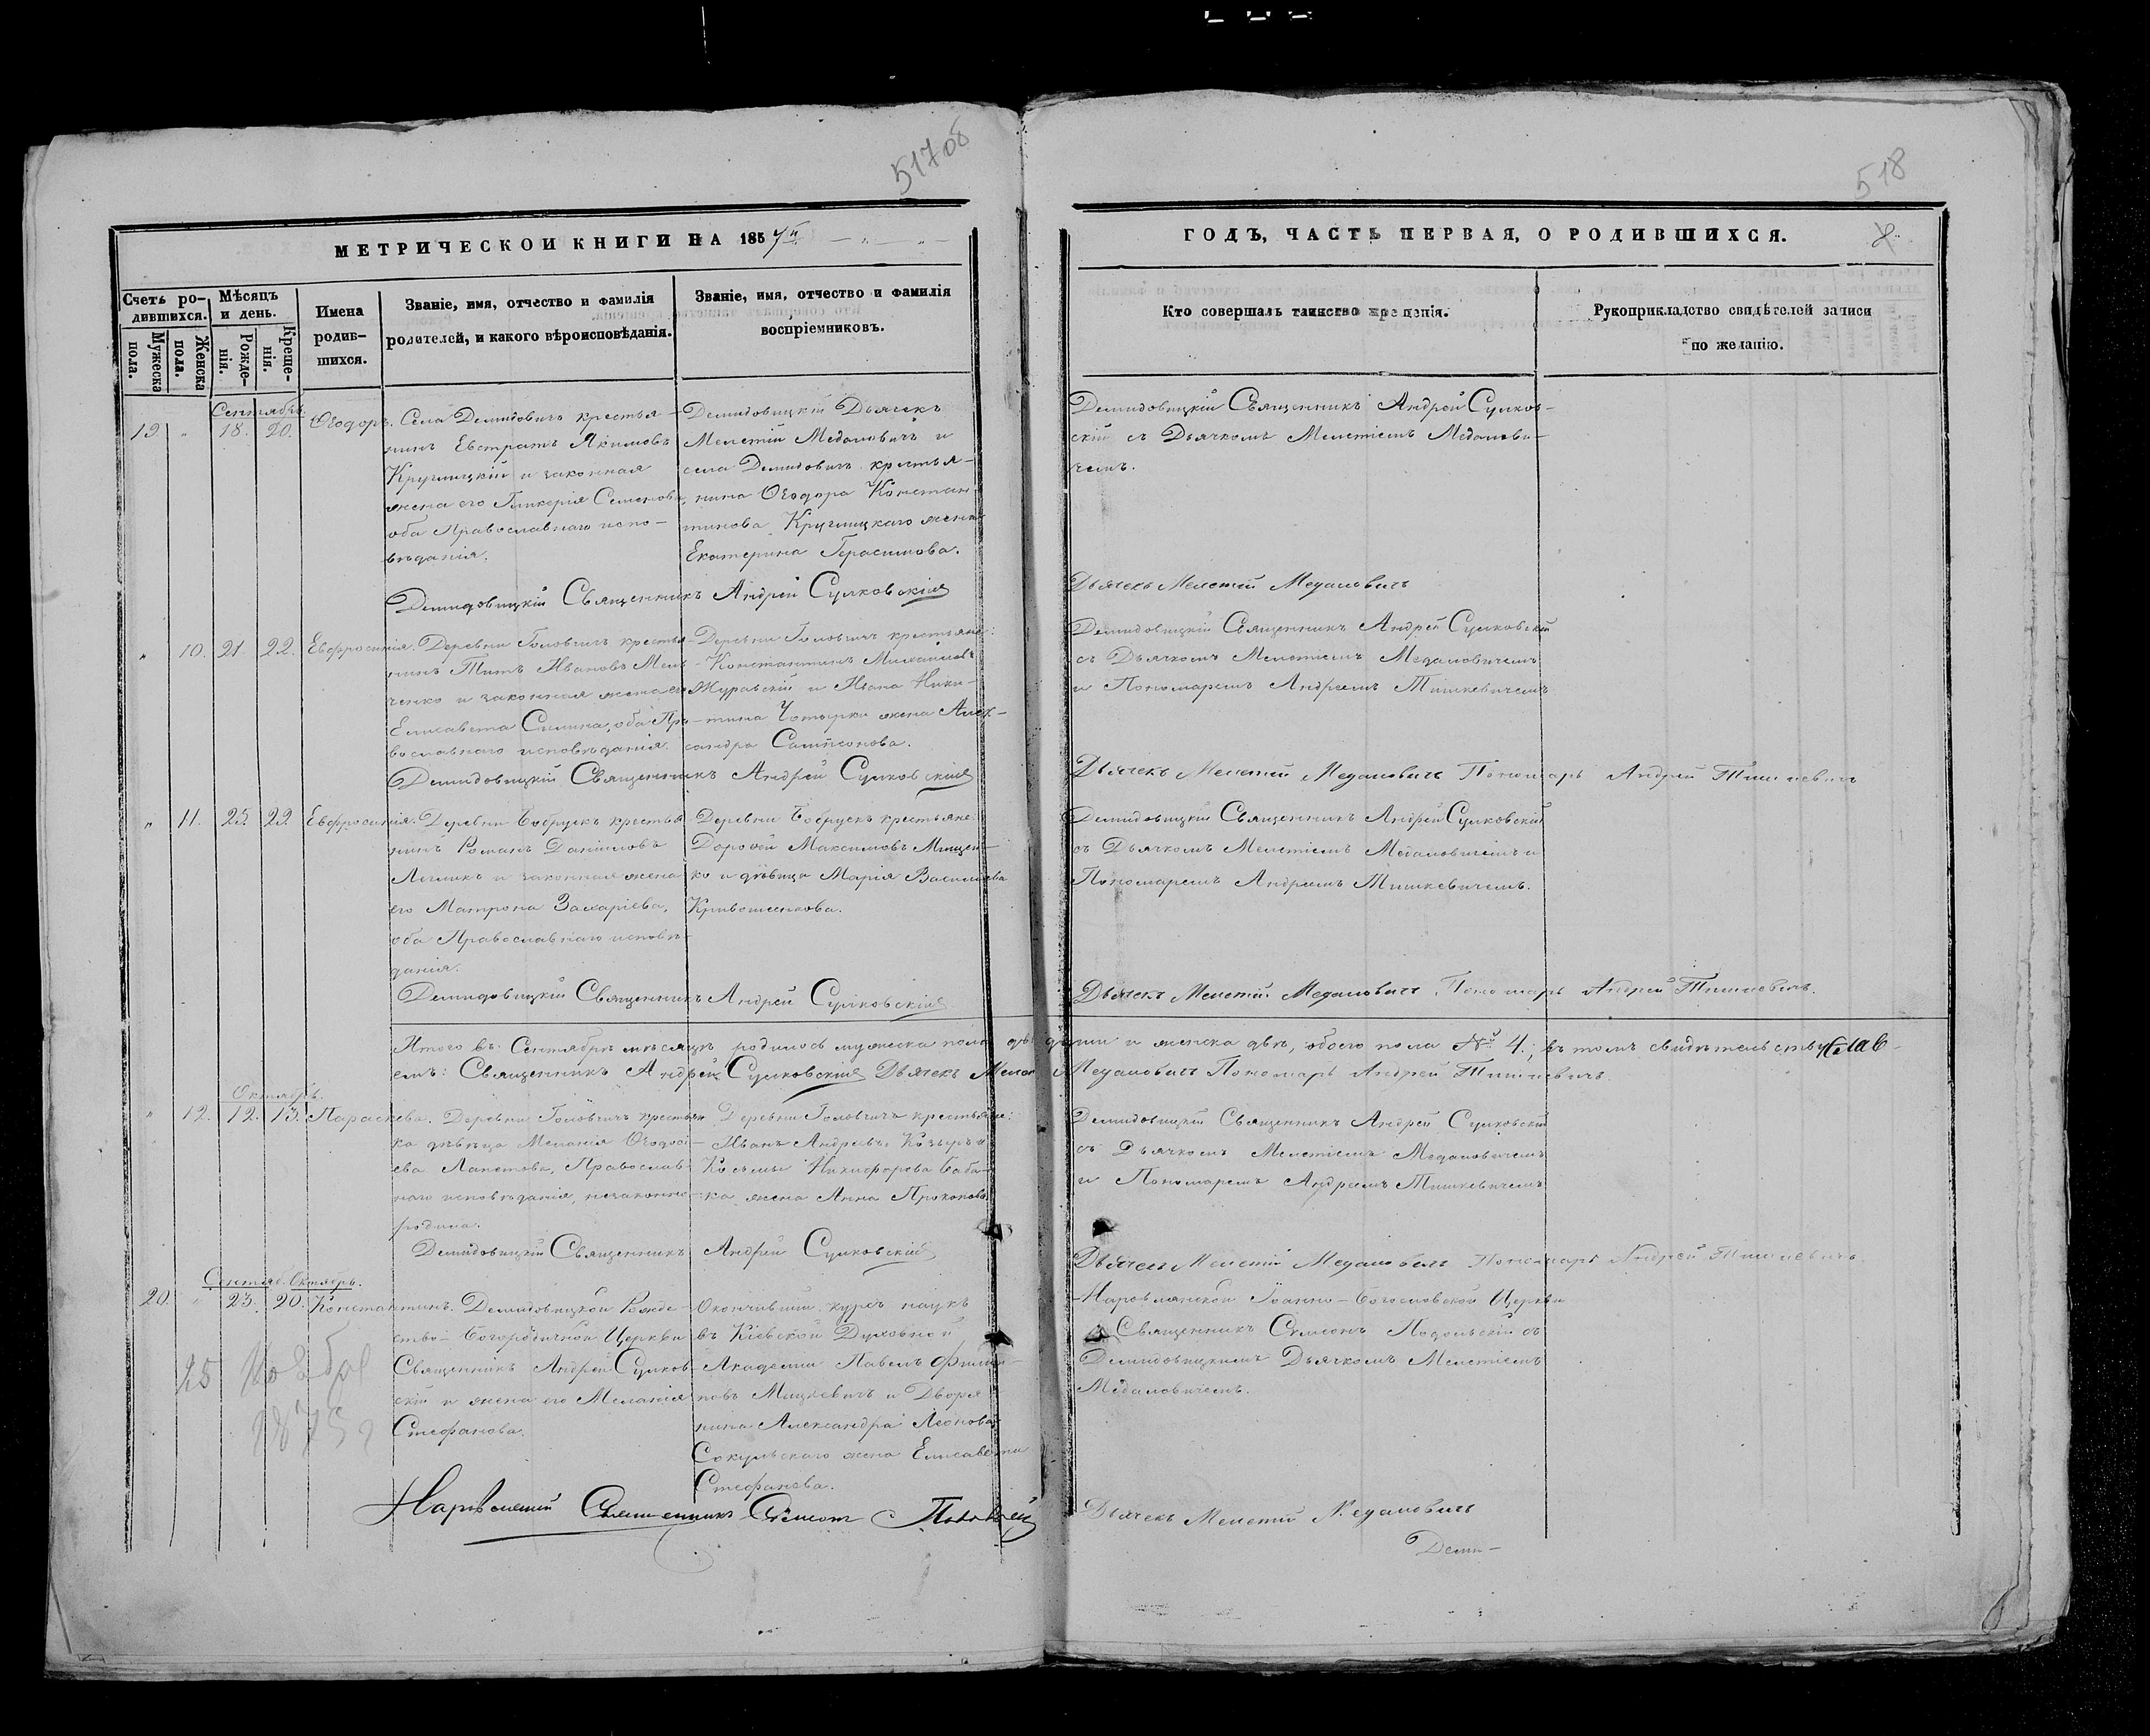 517об
518
МЕТРИЧЕСКОЙ КНИГИ НА 1857й
ГОДЪ, ЧАСТЬ ПЕРВАЯ, О РОДИВШИХСЯ.
Счетъ ро-
дившихся.
Мужеска пола.
Женска пола.
Мѣсяцъ
и день.
Рожде-
нія.
Креще-
нія.
Имена
родив-
шихся.
Званіе, имя, отчество и фамилія
родителей, и какого вѣроисповѣданія.
Званіе, имя, отчество и фамилія
воспріемниковъ.
Кто совершалъ таинство крещенія.
Рукоприкладство свидѣтелей записи
по желанію.
Сентябрь.
19. " 18. 20. Ѳеодоръ.
Села Демидовичъ крестья-
нинъ Евстратъ Якимовъ
Круглицкій и законная
жена его Гликерія Семенова,
оба Православнаго испо-
вѣданія.
Демидовицкій Дьячекъ
Мелетій Медаловичъ и
села Демидовичъ крестья-
нина Ѳеодора Констан-
тинова Круглицкаго жена
Екатерина Герасимова.
Демидовицкій Священникъ Андрей Сулков-
скій съ Дьячкомъ Мелетіемъ Медалови-
чемъ.
Демидовицкій Священникъ Андрей Сулковскій
Дьячекъ Мелетій Медаловичъ
" 10. 21. 22. Евфросинія.
Деревни Головчичъ крестья-
нинъ Титъ Ивановъ Мель-
ченко и законная жена его
Елисавета Силина, оба Пра-
вославнаго исповѣданія.
Деревни Головчичъ крестьяне:
Константинъ Михайловъ
Журавскій и Ивана Ники-
тина Чотырки жена Алек-
сандра Сампсонова.
Демидовицкій Священникъ Андрей Сулковскій
съ Дьячкомъ Мелетіемъ Медаловичемъ
и Пономаремъ Андреемъ Тишкевичемъ
Демидовицкій Священникъ Андрей Сулковскій
Дьячекъ Мелетій Медаловичъ Пономарь Андрей Тишкевичъ
" 11. 25. 29. Евфросинія.
Деревни Бобрускъ крестья-
нинъ Романъ Даніиловъ
и законная жена
его Матрона Захаріева,
оба Православнаго исповѣ-
данія.
Деревни Бобрускъ крестьяне:
Дороѳей Максимовъ Мищен-
ко и дѣвица Марія Васильева
Кривошеенкова.
Демидовицкій Священникъ Андрей Сулковскій
съ Дьячкомъ Мелетіемъ Медаловичемъ и
Пономаремъ Андреемъ Тишкевичемъ.
Демидовицкій Священникъ Андрей Сулковскій
Дьячекъ Мелетій Медаловичъ Пономарь Андрей Тишкевичъ.
Итого въ Сентябрѣ мѣсяцѣ родилось мужеска пола и женска двѣ, обоего пола № 4.; въ томъ свидѣтельствуемъ:
Священникъ Андрей Сулковскій Дьячекъ Мелетій Медаловичъ Пономарь Андрей Тишкевичъ.
Октябрь.
" 12. 12. 13. Параскева.
Деревни Головчичъ крестьян-
ка дѣвица Меланія Ѳеодось-
ева Лапетова, Православ-
наго исповѣданія, незаконно
родила.
Деревни Головчичъ крестьяне:
Иванъ Андреевъ Козырь и
Косьмы Никифорова Баба-
ка жена Анна Прокопова
Демидовицкій Священникъ Андрей Сулковскій
съ Дьячкомъ Мелетіемъ Медаловичемъ
и Пономаремъ Андреемъ Тишкевичемъ
Демидовицкій Священникъ Андрей Сулковскій
Дьячекъ Мелетій Медаловичъ Пономарь Андрей Тишкевичъ
Сентяб. Октябрь.
20. " 23. 20. Константинъ.
Демидовицкой Рожде-
ство-Богородичной Церкви
Священникъ Андрей Сулков-
скій и жена его Меланія
Стефанова.
Окончившій курсъ наукъ
въ Кіевской Духовной
Академіи Павелъ Филип-
повъ Мицкевичъ и Дворя-
нина Александра Леонова
Сокульскаго жена Елисавета
Стефанова.
Наровлянской Іоанно-Богословской Церкви
Священникъ Симеонъ Подольскій съ
Демидовицкимъ Дьячкомъ Мелетіемъ
Медаловичемъ.
25 Ноября
1875 г
Священникъ Симеонъ
Дьячекъ Мелетій Медаловичъ
Деми-